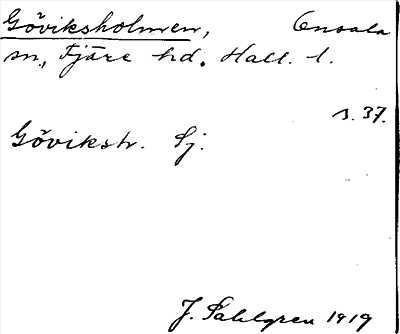 Göviksholmen, Onsala
sn., Fjäre hd. Hall. l.
s. 37.
Gövikstr. Sj.
J. Sahlgren 1919